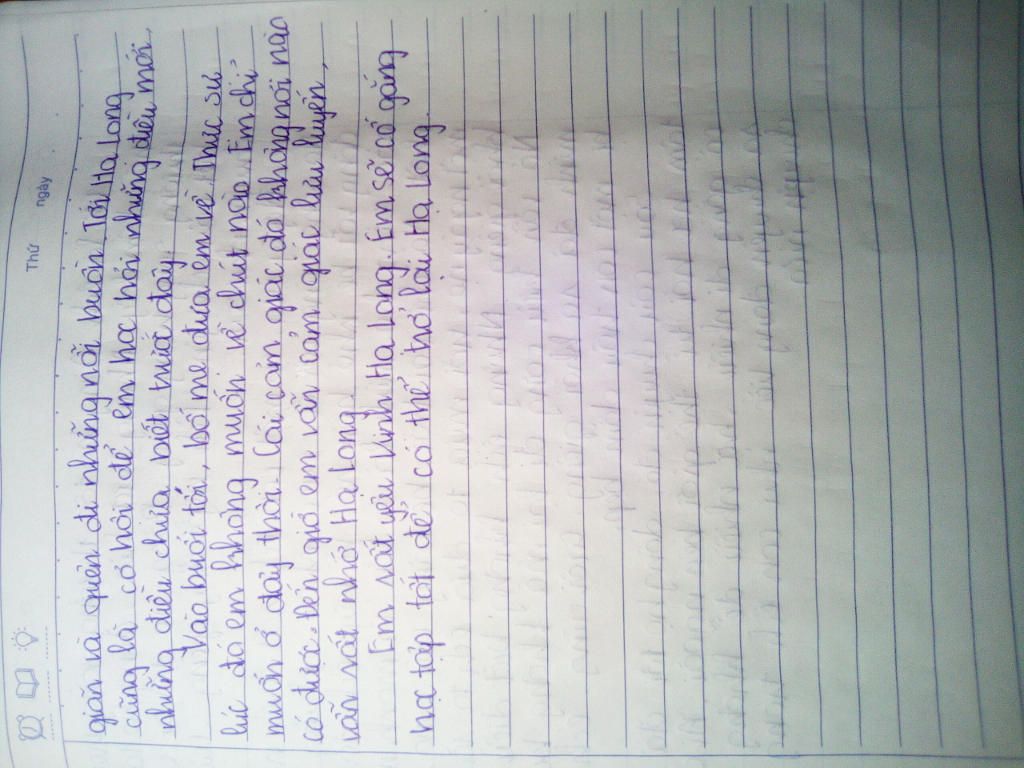 Thứ ngày
giãn và quên đi những nỗi buồn. Tới Hạ Long
cũng là cơ hội để em học hỏi những điều mới,
những điều chưa biết trước đây.
Vào buổi tối, bố mẹ đưa em về. Thực sự
lúc đó em không muốn về chút nào. Em chỉ
muốn ở đây thôi. Cái cảm giác đó không nơi nào
có được. Đến giờ em vẫn cảm giác lưu luyến,
vẫn rất nhớ Hạ Long.
Em rất yêu Hạ Long. Em sẽ cố gắng
học tập tốt để có thể trở lại Hạ Long.